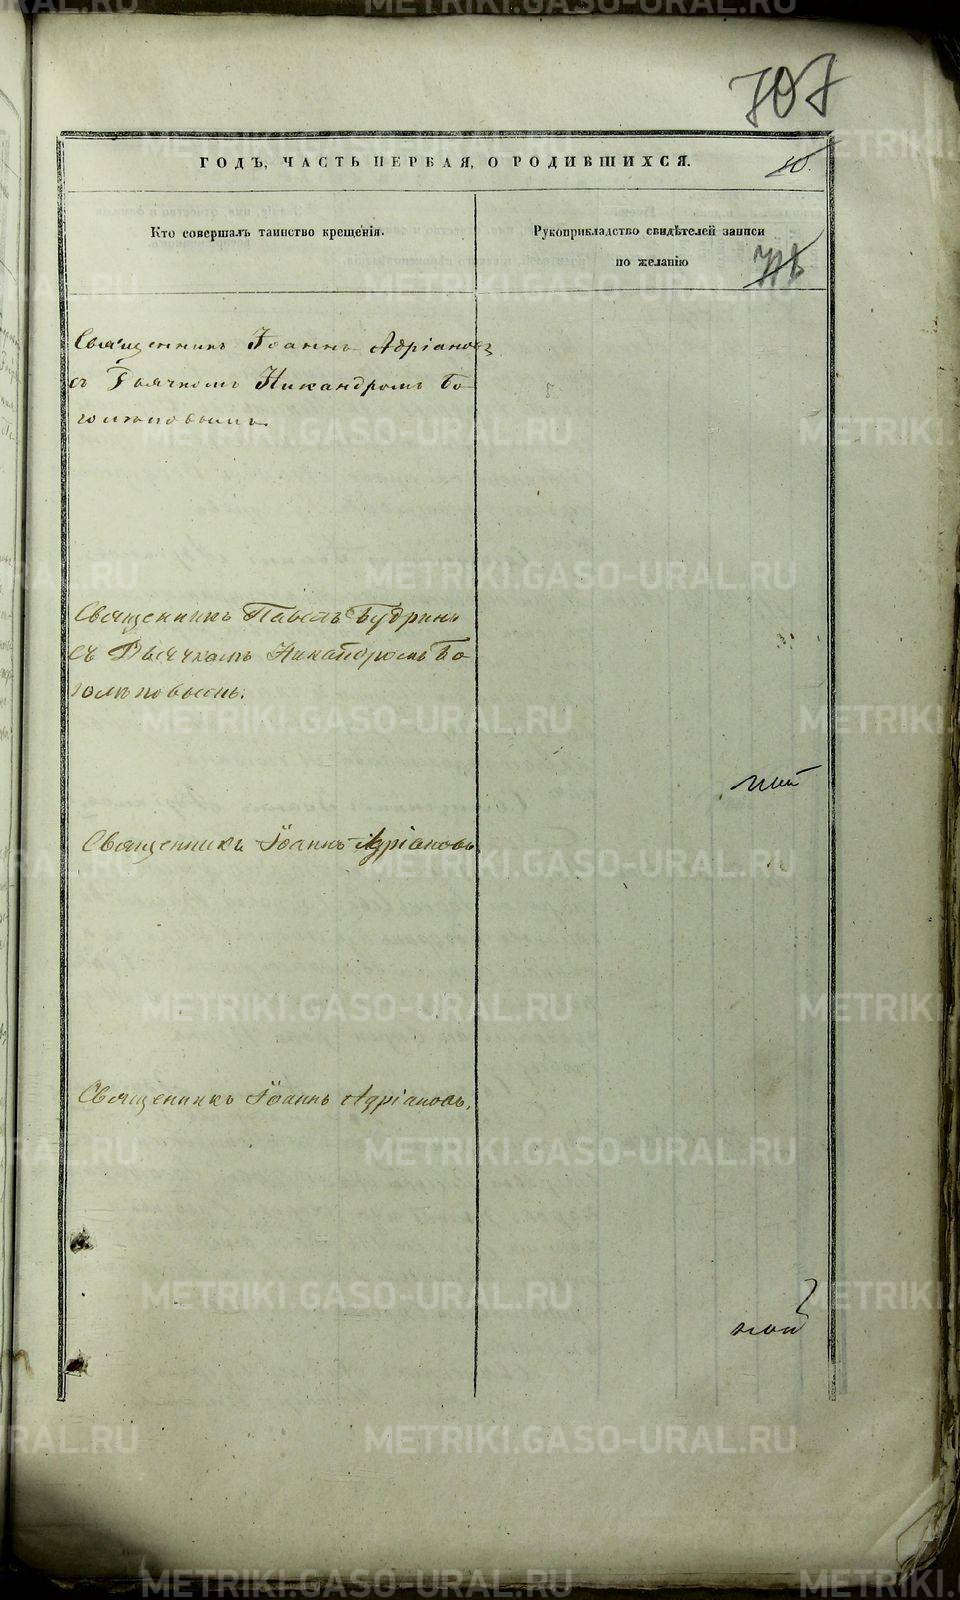 707
ГОДЪ, ЧАСТЬ ПЕРВАЯ, О РОДИВШИХСЯ.
10.
Кто совершалъ таинство крещенія.
Рукоприкладство свидѣтелей записи
по желанію
Священникъ Іоаннъ Адріановъ
съ Дьячкомъ Никандромъ Бо-
голѣповымъ.
Священникъ Павелъ Будринъ
съ Дьячкомъ Никандромъ Бо-
голѣповымъ.
Священникъ Іоаннъ Адріановъ
Священникъ Іоаннъ Адріановъ.
METRIKI.GASO-URAL.RU